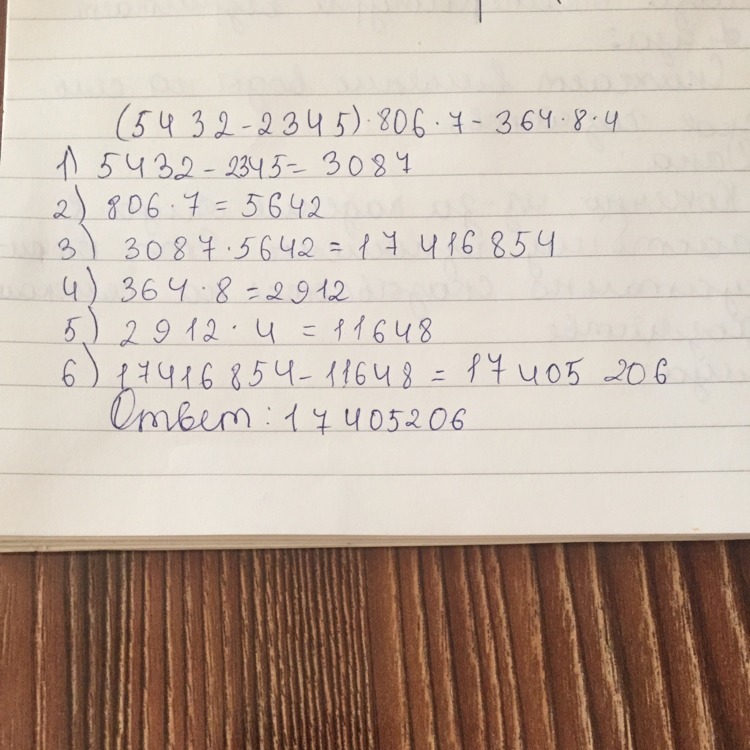 (5432-2345)·806·7-364·8·4
1) 5432-2345=3087
2) 806·7=5642
3) 3087·5642=17416854
4) 364·8=2912
5) 2912·4=11648
6) 17416854-11648=17405206
Ответ: 17405206